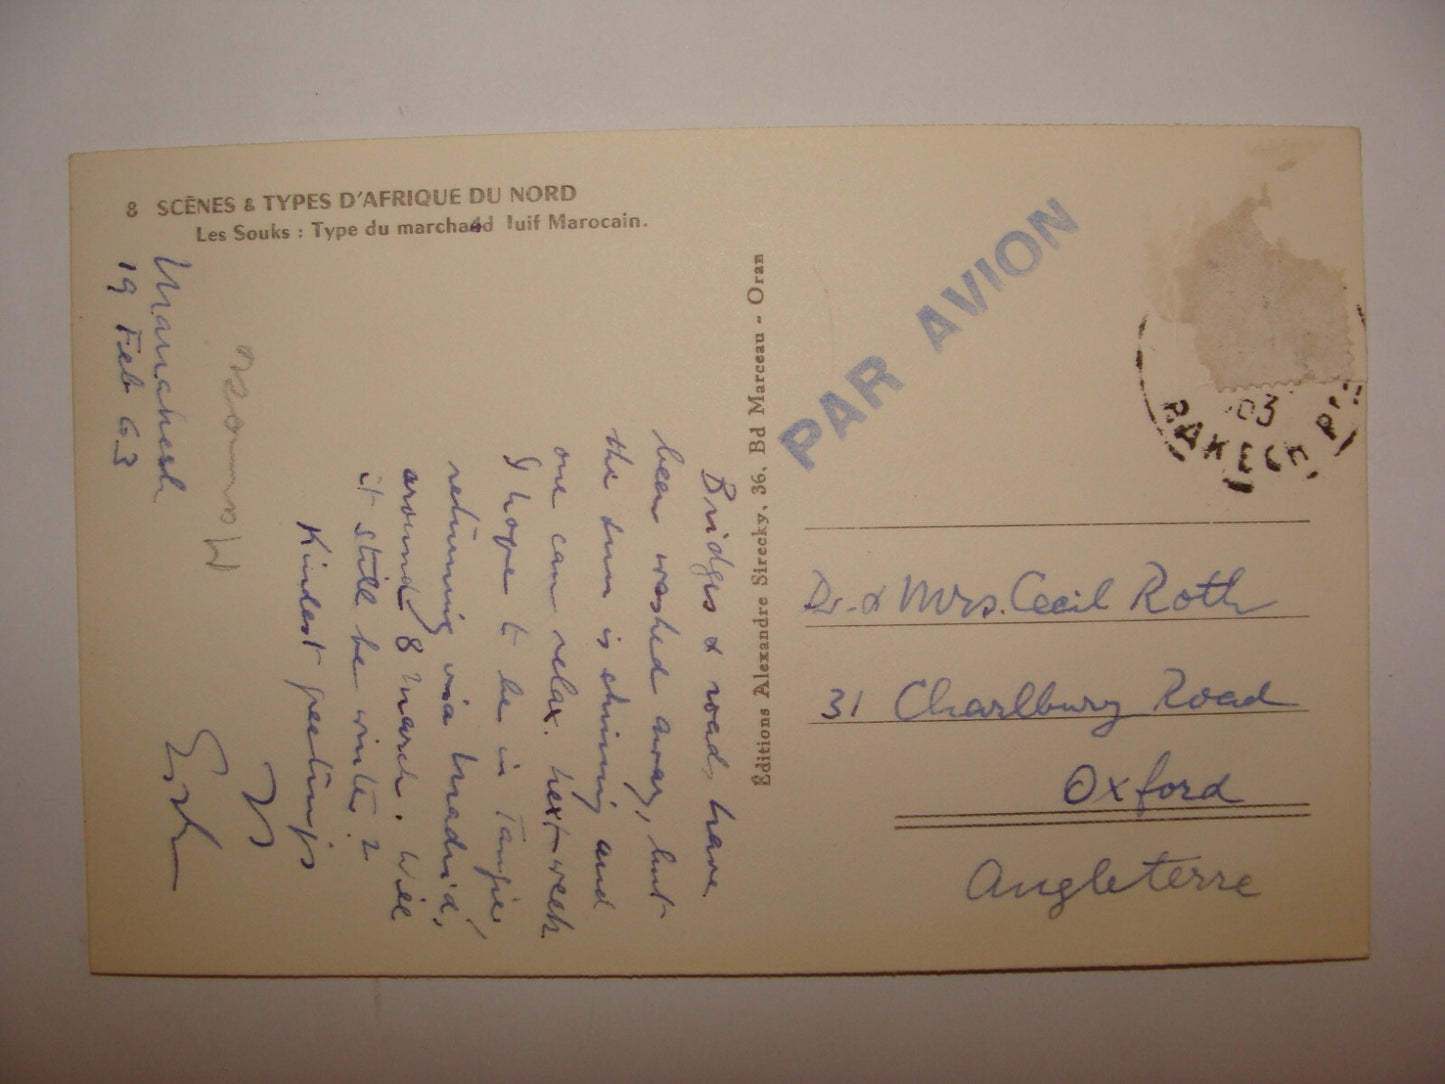 8 SCÈNES & TYPES D'AFRIQUE DU NORD
Les Souks : Type du marchand Juif Marocain.
Marrakesh
19 Feb 63
Bridges & roads have
been washed away, but
the sun is shining and
one can relax. Next week
I hope to be in Tangier
returning via Madrid,
around 8 March. Will
it still be winter?
Kindest greetings
Morocco
Éditions Alexandre Sirecky, 36, Bd Marceau - Oran
PAR AVION
RAKECH P
Dr. & Mrs. Cecil Roth
31 Charlbury Road
Oxford
Angleterre